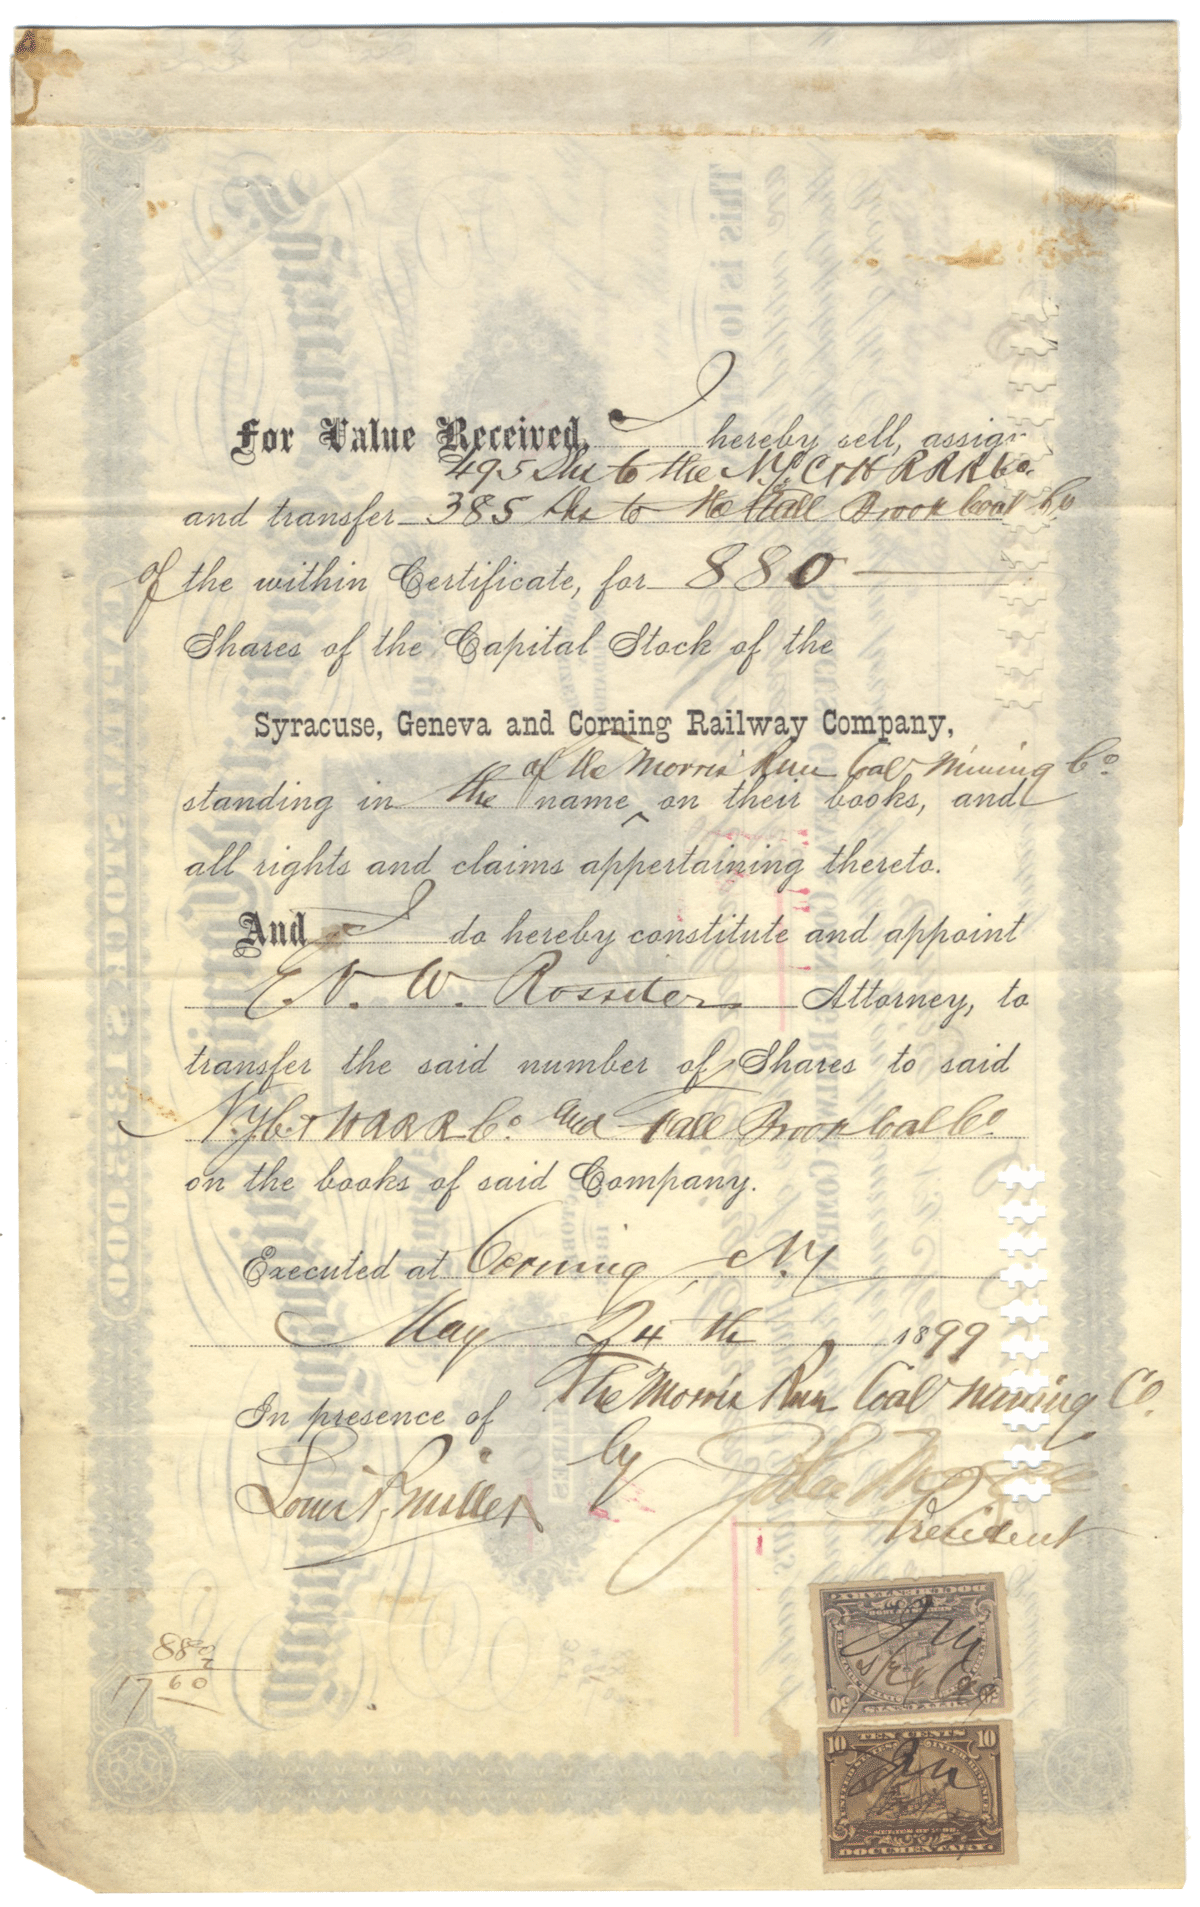 For Value Received, I hereby sell, assign
495 Shs to the N.Y.C & H R R R Co.
and transfer 385 Shs to the Fall Brook Coal Co
of the within Certificate, for 880
Shares of the Capital Stock of the
Syracuse, Geneva and Corning Railway Company,
of the Morris Run Coal Mining Co
standing in the name ‸ on their books, and
all rights and claims appertaining thereto.
And I do hereby constitute and appoint
E. V. W. Rossiter Attorney, to
transfer the said number of Shares to said
N.Y.C. & H R R R Co. and Fall Brook Coal Co
on the books of said Company.
Executed at Corning, N.Y
May 24 th 1899
The Morris Run Coal Mining Co.
In presence of
by
Miller
President
880
2
17 60
50
50
TEN CENTS
10
10
SERIES OF 1898
DOCUMENTARY